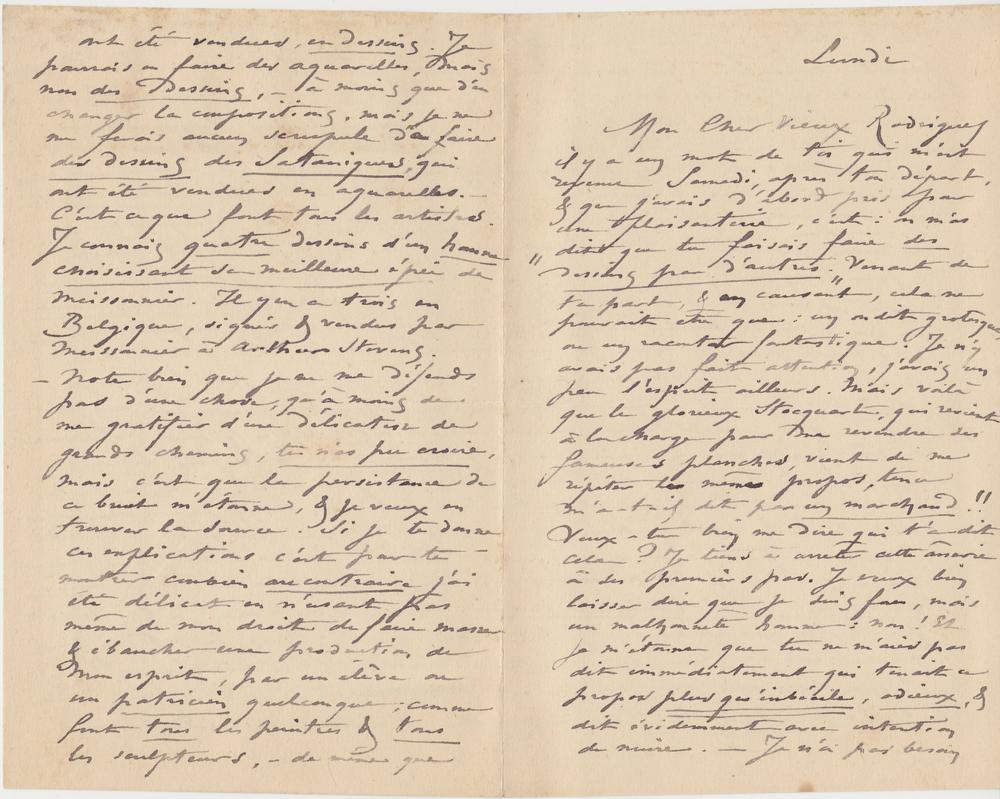 ont été vendues, en dessins. Je
pourrais en faire des aquarelles, mais
non des Dessins, – à moins que d'en
changer la composition, mais je ne
me ferais aucun scrupule d'en faire
des dessins des Sataniques, qui
ont été vendues en aquarelles. –
C'est ce que font tous les artistes.
Je connais quatre dessins d'un homme
choisissant sa meilleure épée de
Meissonnier. Il y en a trois en
Belgique, signés & vendus par
Meissonnier à Arthur Stevens.
– Note bien que je ne me défends
pas d'une chose, qu'à moins de
me gratifier d'une délicatesse de
grands chemins, tu n'as pu croire,
mais c'est que la persistance de
ce bruit m'étonne, & je veux en
trouver la source. Si je te donne
ces explications c'est pour te
montrer combien au contraire j'ai
été délicat en n'usant pas
même de mon droit de faire masser
& ébaucher une production de
Mon esprit, par un élève ou
un patricien quelconque ; comme
font tous les peintres & tous
les sculpteurs, – de même que
Lundi
Mon Cher Vieux Rodrigues
il y a un mot de toi qui m'est
revenu Samedi, après ton départ,
& que j'avais d'abord pris pour
une plaisanterie, c'est : on m'a
dit que tu faisais faire des
"dessins par d'autres." Venant de
ta part, & en causant, cela ne
pouvait être que : un on dit grotesque
ou un racontar fantastique. Je n'y
avais pas fait attention, j'avais un
peu l'esprit ailleurs. Mais voilà
que le glorieux Stocquart, qui revient
à la charge pour me revendre ses
fameuses planches, vient de me
répéter le même propos, tenu
m'a-t-il dit par un marchand !!
Veux-tu bien me dire qui t'a dit
cela ? Je tiens à arrêter cette ânerie
à ses premiers pas. Je veux bien
laisser dire que je suis fou, mais
un malhonnête homme : non ! Et
je m'étonne que tu ne m'aies pas
dit immédiatement qui tenait ce
propos plus qu'imbécile, odieux, &
dit évidemment avec intention
de nuire. – Je n'ai pas besoin